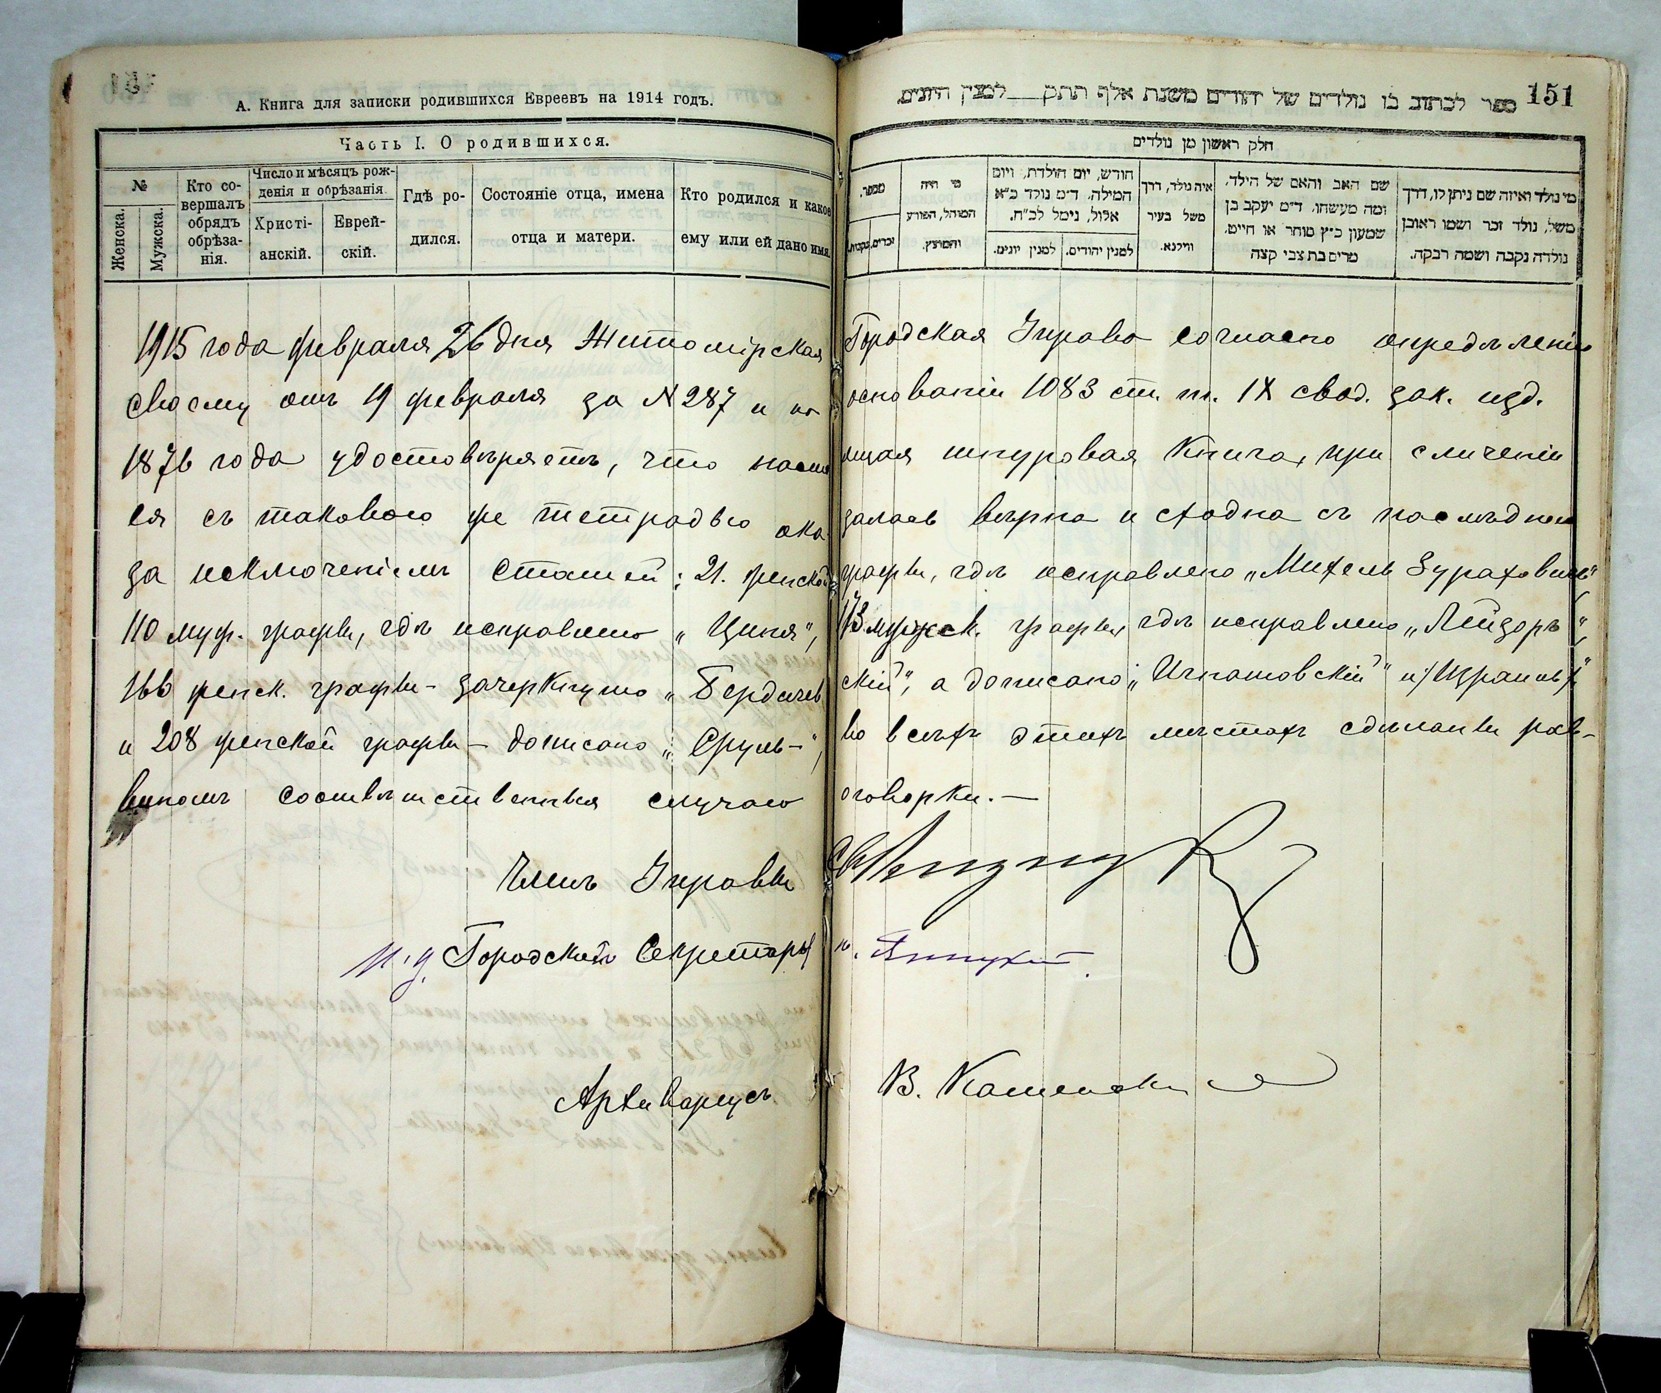 А. Книга для записки родившихся Евреевъ на 1914 годъ.
Часть I. О родившихся.
№
Женска.
Мужска.
Кто совершалъ обрядъ обрѣзанія.
Число и мѣсяцъ рожденія и обрѣзанія.
Христіанскій.
Еврейскій.
Гдѣ родился.
Состояніе отца, имена отца и матери.
Кто родился и какое ему или ей дано имя.
ספר לכתוב בו נולדים של יהודים משנת אלף תתק__למנין היונים.
151
חלק ראשון מן נולדים
מספר.
זכרים.
נקבות.
מי היה המוהל, הפורע והמוצץ.
חודש, יום הולדת, ויום המילה. ד״מ נולד כ״א אלול, נימל לכ״ח.
למנין יונים.
למנין יהודים.
איה נולד, דרך משל בעיר ווילנא.
שם האב והאם של הילד, ומה מעשהו. ד״מ יעקב בן שמעון כ״ץ סוחר או חייט. מרים בת צבי קצה
מי נולד ואיזה שם ניתן לו, דרך משל, נולד זכר ושמו ראובן נולדה נקבה ושמה רבקה.
1915 года февраля 26 дня Житомірская Городская Управа согласно опредѣленію
своему отъ 19 февраля за № 287 и на основаніи 1083 ст. т. IX свод. зак. изд.
1876 года удостовѣряетъ, что настоящая шнуровая книга, при сличеніи
ея съ таковою же тетрадью оказалась вѣрна и сходна съ послѣднею
за исключеніемъ статей: 21 женской графы, гдѣ исправлено „Михель Зураховичъ"
110 муж. графы, гдѣ исправлено „Циня", 113 мужск. графы, гдѣ исправлено „Лейзоръ",
166 женск. графы - зачеркнуто „Бердичевскій", а дописано „Игнатовскій" и „Израиль"
и 208 женской графы - дописано „Сруль-", во всѣхъ этихъ мѣстахъ сдѣланы рав-
виномъ соотвѣтственныя случаю оговорки. —
Членъ Управы
И. д. Городского Секретаря
Архиваріусъ В.